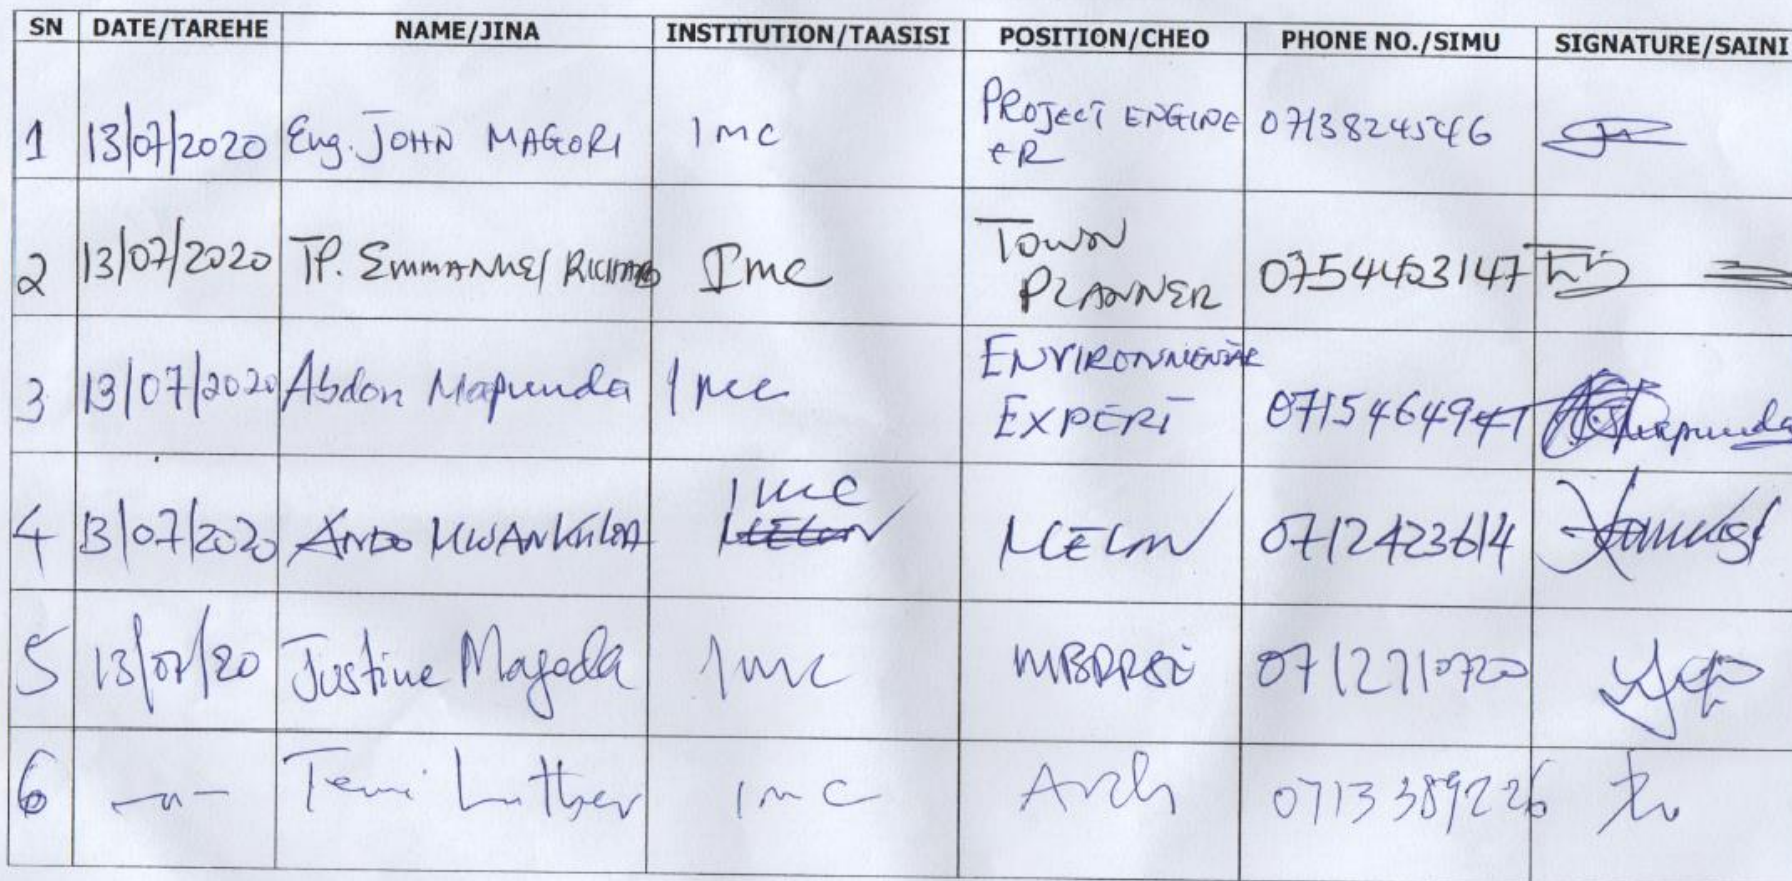 SN DATE/TAREHE NAME/JINA INSTITUTION/TAASISI POSITION/CHEO PHONE NO./SIMU SIGNATURE/SAINI
1 13/07/2020 Eng. JOHN MAGORI IMC PROJECT ENGINE
ER 0713824546
2 13/07/2020 TP. EMMANUEL RICHARD IMC TOWN
PLANNER 0754423147
3 13/07/2020 Abdon Mapunda IMC ENVIRONMENTAL
EXPERT 0715464947 Mapunda
4 13/07/2020 ANDO IMC
0712423614
5 13/07/20 Justine IMC 0712710720
6 -"- Temi Luther IMC Arch 0713389226